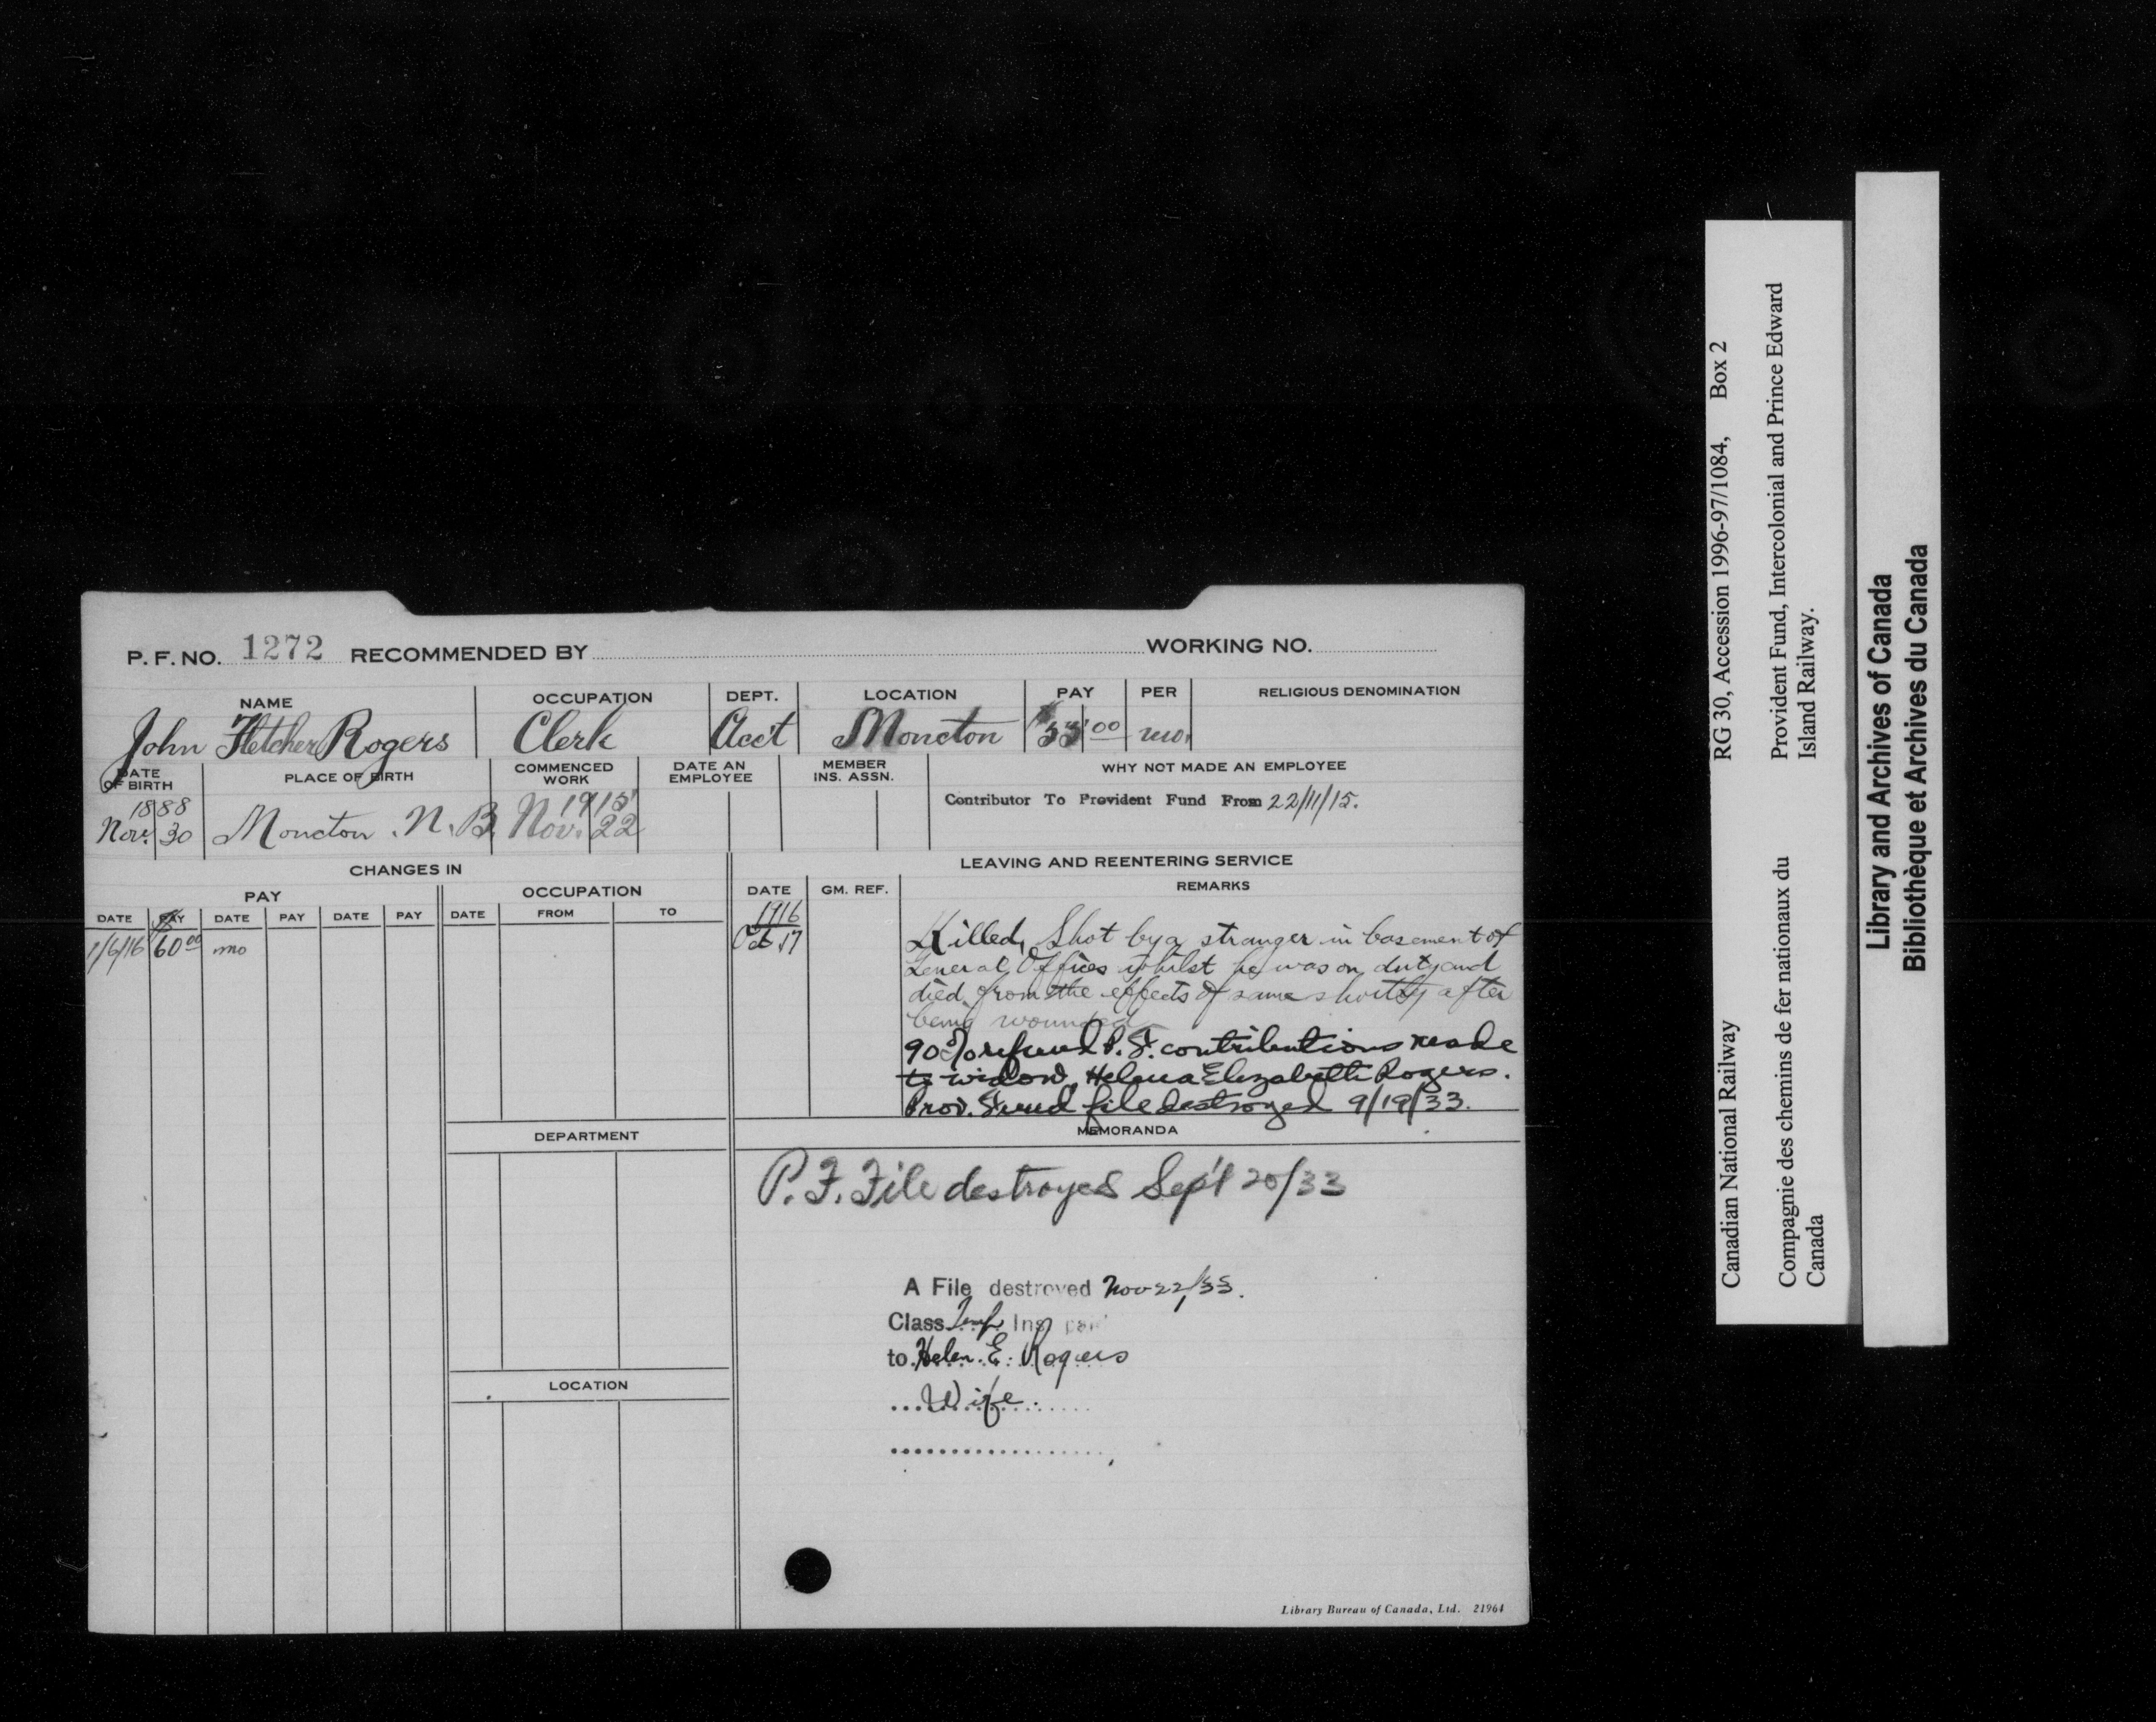 P. F. NO. 1272 RECOMMENDED BY WORKING NO.
NAME OCCUPATION DEPT. LOCATION PAY PER RELIGIOUS DENOMINATION
John Fletcher Rogers Clerk Acct Moncton $ 00 mo.
DATE OF BIRTH PLACE OF BIRTH COMMENCED WORK DATE AN EMPLOYEE MEMBER INS. ASSN. WHY NOT MADE AN EMPLOYEE
1888 1915 Contributor To Provident Fund From 22/11/15.
Nov. 30 Moncton. N. B. Nov. 22
CHANGES IN LEAVING AND REENTERING SERVICE
PAY OCCUPATION DATE GM. REF. REMARKS
DATE PAY DATE PAY DATE PAY DATE FROM TO
1916
1/6/16 60 00 mo 17 Killed, Shot by a stranger in basement of
General Offices whilst he was on duty and
died from the effects of same shortly after
being wounded
90% refund P. F. contributions made
to widow, Helena Elizabeth Rogers.
Prov. Fund file destroyed 9/19/33.
DEPARTMENT MEMORANDA
P. F. File destroyed Sep't 20/33
A File destroyed Nov 22/33.
Class Ins paid
to Helen. E. Rogers
LOCATION
Wife.
Library Bureau of Canada, Ltd. 21964
Canadian National Railway RG 30, Accession 1996-97/1084, Box 2
Compagnie des chemins de fer nationaux du
Canada
Provident Fund, Intercolonial and Prince Edward
Island Railway.
Library and Archives of Canada
Bibliothèque et Archives du Canada